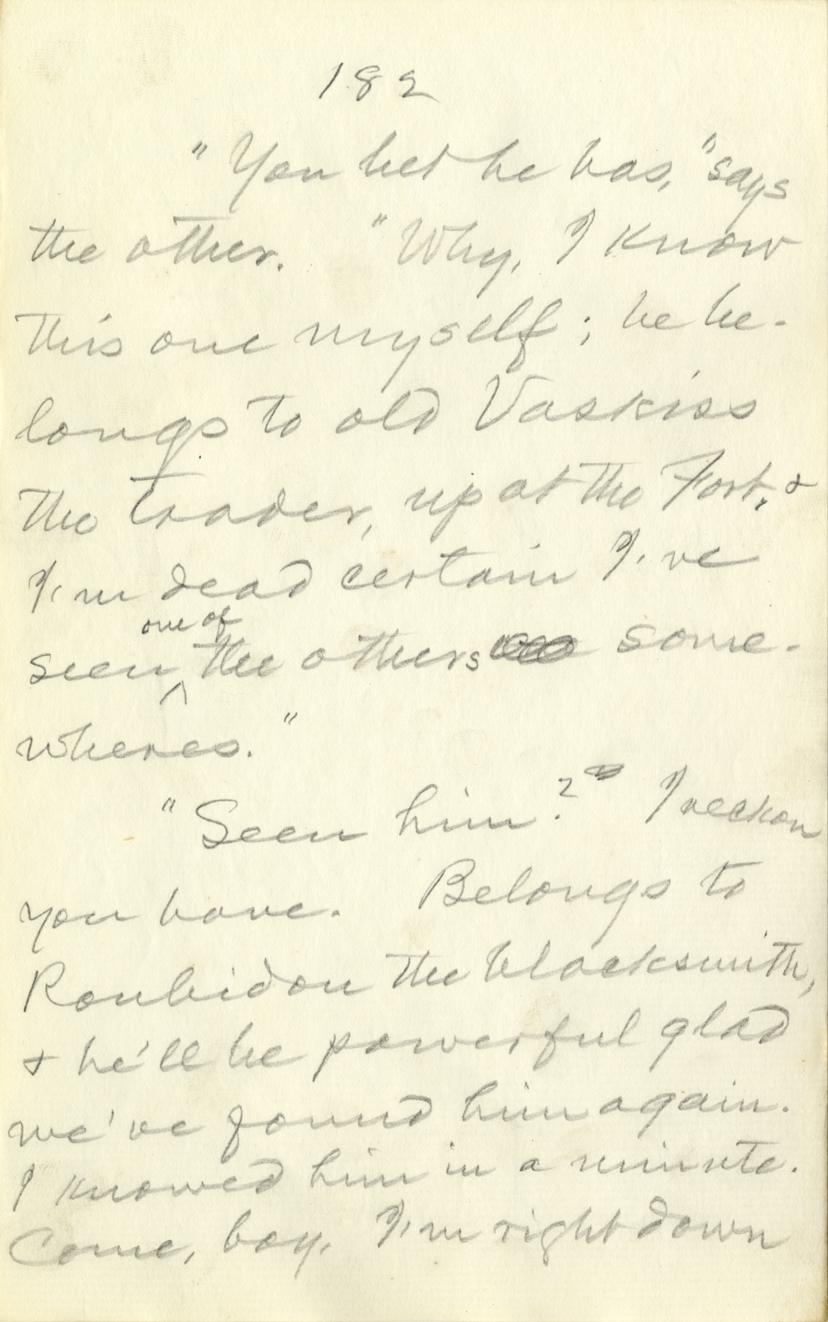 182
"You bet he has," says
the other. "Why, I know
this one myself; he be-
longs to old Vaskiss
the trader, up at the Fort, &
I'm dead certain I've
seen one of the others some-
wheres."
"Seen him? I reckon
you have. Belongs to
Roubidou the blacksmith,
& he'll be powerful glad
we've found him again.
I knowed him in a minute.
Come, boy, I'm right down